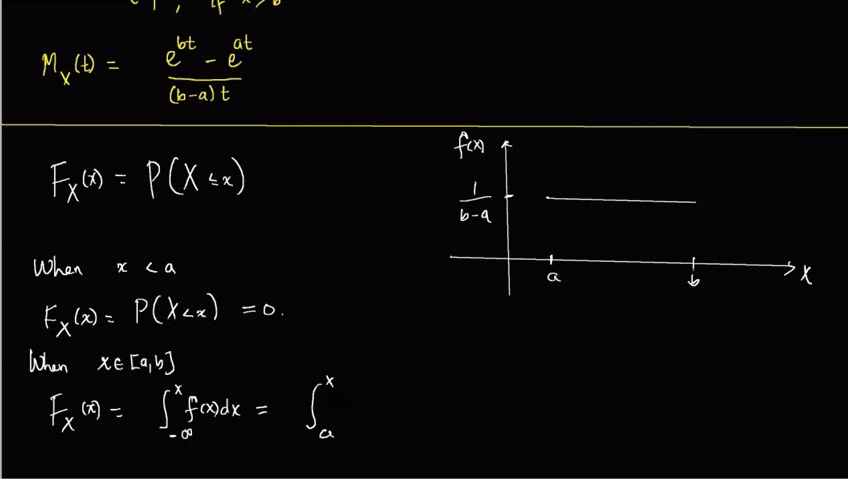 , if x > b
M_X(t) = (e^{bt} - e^{at}) / ((b-a)t)
F_X(x) = P(X ≤ x)
When x < a
F_X(x) = P(X < x) = 0.
When x ∈ [a,b]
F_X(x) = ∫_{-∞}^{x} f(x)dx = ∫_{a}^{x}
f(x)
1/(b-a)
a b X